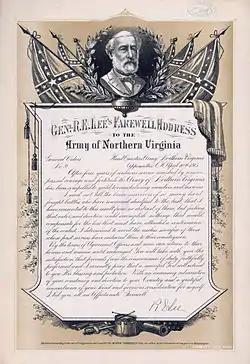 GEN. R.E. LEE'S FAREWELL ADDRESS
TO THE
Army of Northern Virginia
General Orders Head Quarters Army Northern Virginia
No. 9 Appomattox C.H. April 10th 1865
After four years of arduous service marked by unsur-
passed courage and fortitude the Army of Northern Virginia
has been compelled to yield to overwhelming numbers and resources
I need not tell the brave survivors of so many hard
fought battles who have remained steadfast to the last that I
have consented to this result from no distrust of them; but feeling
that valor and devotion could accomplish nothing that would
compensate for the loss that must have attended a continuance
of the contest, I determined to avoid the useless sacrifice of those
whose past services have endeared them to their countrymen
By the terms of Agreement Officers and men can return to their
homes and remain until exchanged. You will take with you the
satisfaction that proceeds from the consciousness of duty faithfully
performed and I earnestly pray that a merciful God will extend
to you His blessing and protection. With an increasing admiration
of your constancy and devotion to your Country and a grateful
remembrance of your kind and generous consideration for myself
I bid you all an Affectionate Farewell
R E Lee